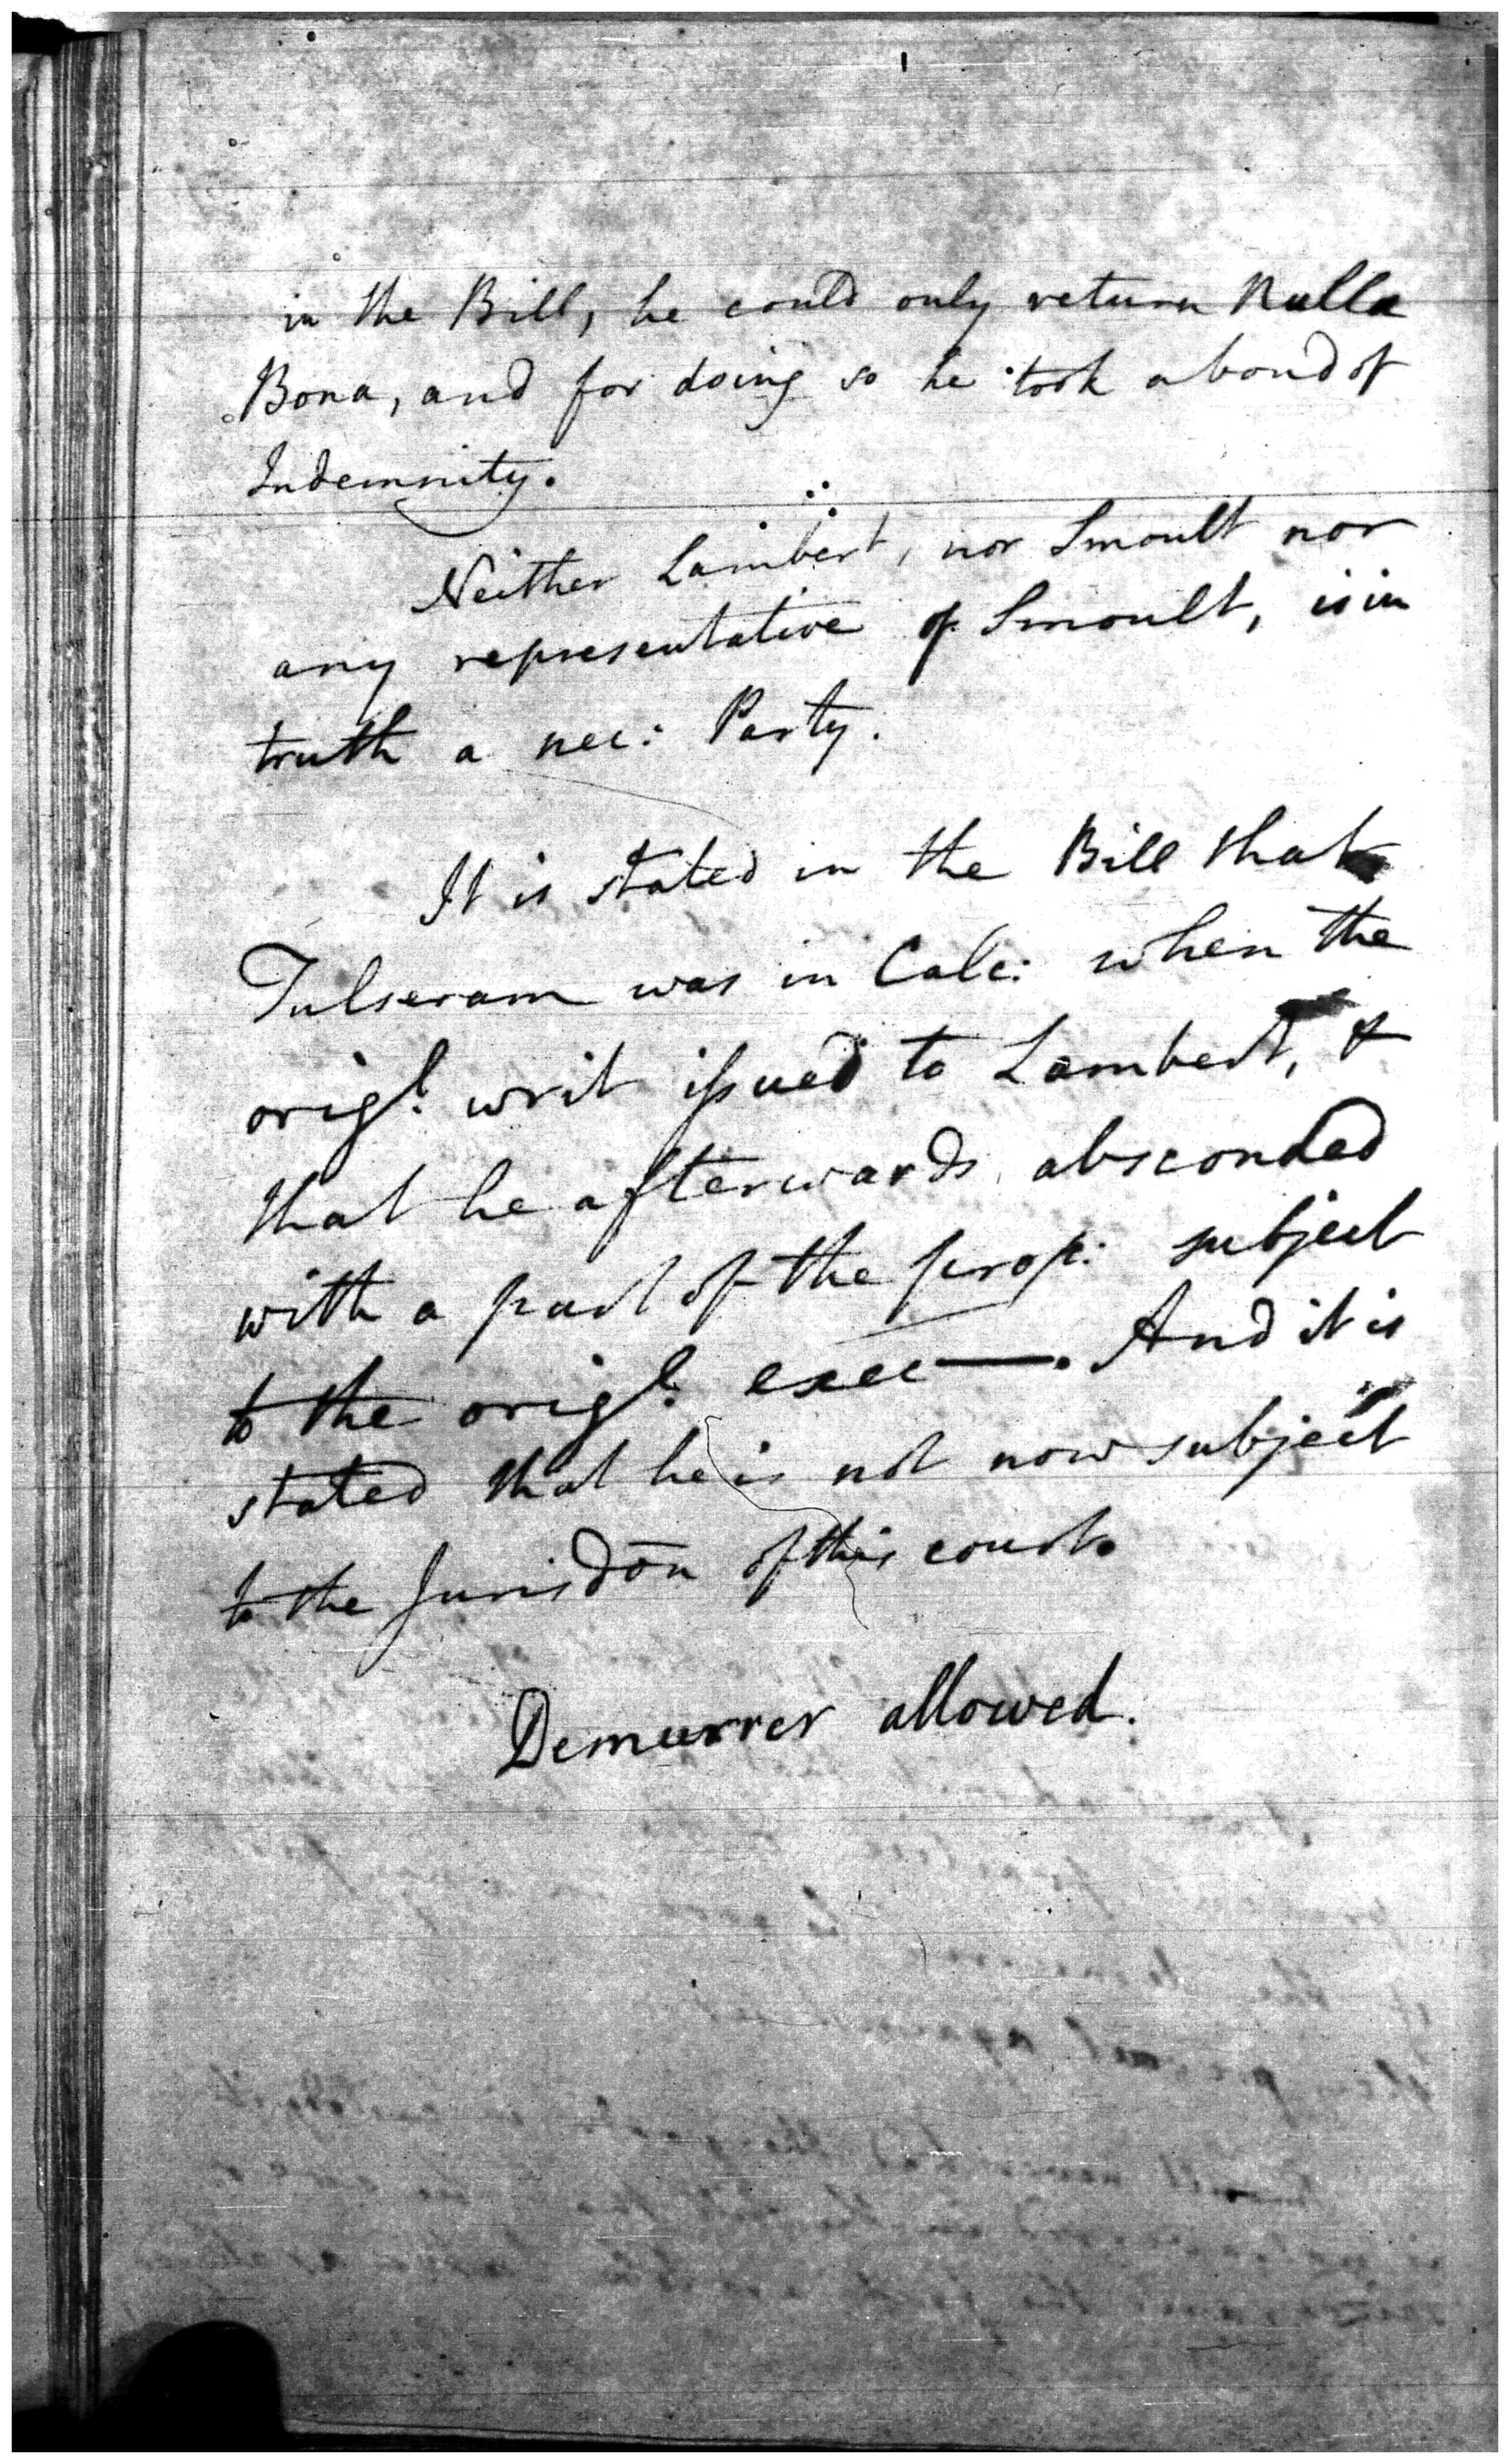 in the Bill, he could only return Nulla
Bona, and for doing so he took a bond of
Indemnity.
Neither Lambert, nor Smoult nor
any representative of Smoult, is in
truth a nec: Party.
It is stated in the Bill that
Tulseram was in Calc: when the
origl. writ issued to Lambert, &
that he afterwards absconded
with a part of the prop: subject
to the origl. exec—. And it is
stated that he is not now subject
to the Jurisdōn of this court.
Demurrer allowed.